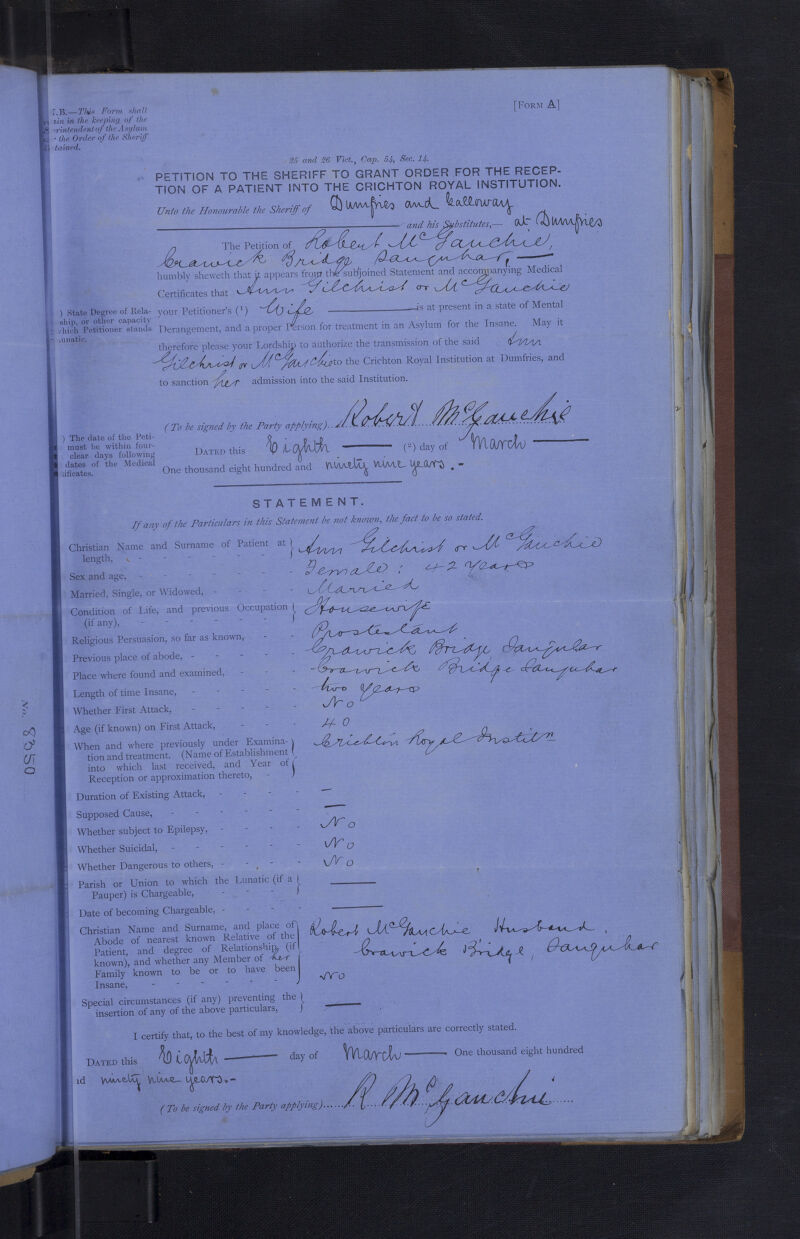 [FORM A]
.B.—This Form shall
in in the keeping of the
rintendent of the Asylum
the Order of the Sheriff
tained.
25 and 26 Vict., Cap. 54, Sec. 14.
PETITION TO THE SHERIFF TO GRANT ORDER FOR THE RECEP-
TION OF A PATIENT INTO THE CRICHTON ROYAL INSTITUTION.
Unto the Honourable the Sheriff of Dumfries and Galloway
and his Substitutes,— at Dumfries
The Petition of Robert McGauchie,
Crawick Bridge Sanquhar,
humbly sheweth that it appears from the subjoined Statement and accompanying Medical
Certificates that Ann Gilchrist or McGauchie
your Petitioner's (¹) Wife is at present in a state of Mental
Derangement, and a proper Person for treatment in an Asylum for the Insane. May it
therefore please your Lordship to authorize the transmission of the said Ann
Gilchrist or McGauchie to the Crichton Royal Institution at Dumfries, and
to sanction her admission into the said Institution.
) State Degree of Rela-
ship, or other capacity
which Petitioner stands
unatic.
(To be signed by the Party applying) Robert McGauchie
DATED this Eighth (²) day of March
One thousand eight hundred and ninety nine years.-
) The date of the Peti-
must be within four-
clear days following
dates of the Medical
tificates.
STATEMENT.
If any of the Particulars in this Statement be not known, the fact to be so stated.
Christian Name and Surname of Patient at
length, Ann Gilchrist or McGauchie
Sex and age, Female : 42 years
Married, Single, or Widowed, Married
Condition of Life, and previous Occupation
(if any), Housewife
Religious Persuasion, so far as known, Prostestant
Previous place of abode, Crawick Bridge Sanquhar
Place where found and examined, Crawick Bridge Sanquhar
Length of time Insane, two years
Whether First Attack, No
Age (if known) on First Attack, 40
When and where previously under Examina-
tion and treatment. (Name of Establishment
into which last received, and Year of
Reception or approximation thereto, Crichton Royal Institn
Duration of Existing Attack, —
Supposed Cause, —
Whether subject to Epilepsy, No
Whether Suicidal, No
Whether Dangerous to others, No
Parish or Union to which the Lunatic (if a
Pauper) is Chargeable, —
Date of becoming Chargeable, —
Christian Name and Surname, and place of
Abode of nearest known Relative of the
Patient, and degree of Relationship, (if
known), and whether any Member of her
Family known to be or to have been
Insane,
Robert McGauchie Husband.
Crawick Bridge, Sanquhar
No
Special circumstances (if any) preventing the
insertion of any of the above particulars, —
I certify that, to the best of my knowledge, the above particulars are correctly stated.
DATED this Eighth day of March One thousand eight hundred
d ninety nine years.-
(To be signed by the Party applying) R McGauchie